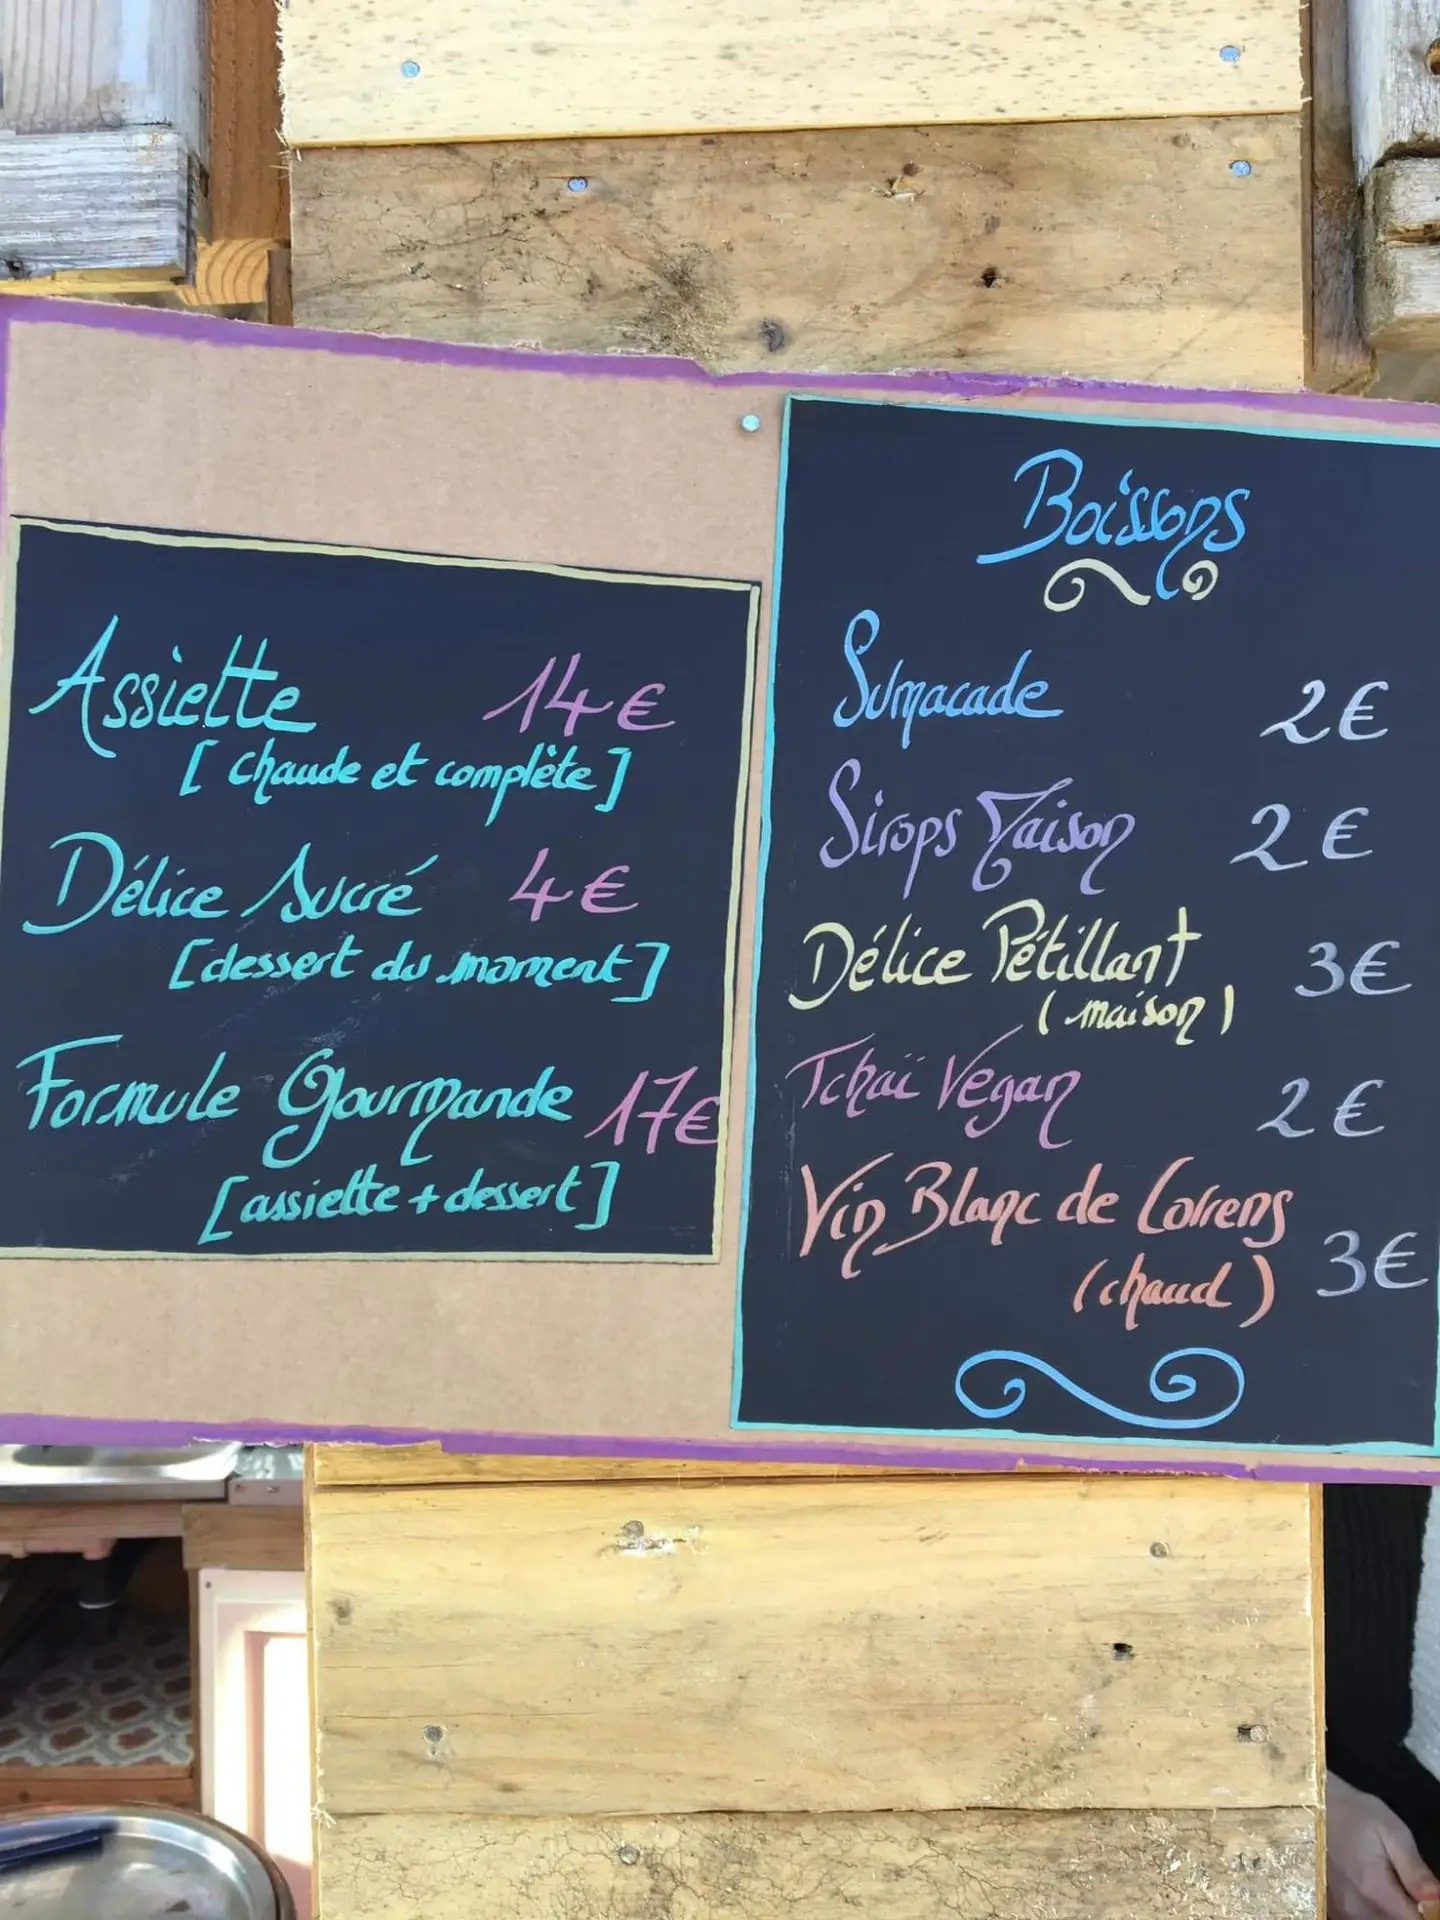 Assiette 14€
[chaude et complète]
Délice Sucré 4€
[dessert du moment]
Formule Gourmande 17€
[assiette + dessert]
Boissons
Sumacade 2€
Sirops Maison 2€
Délice Pétillant 3€
(maison)
Tchaï Vegan 2€
Vin Blanc de Correns
(chaud) 3€